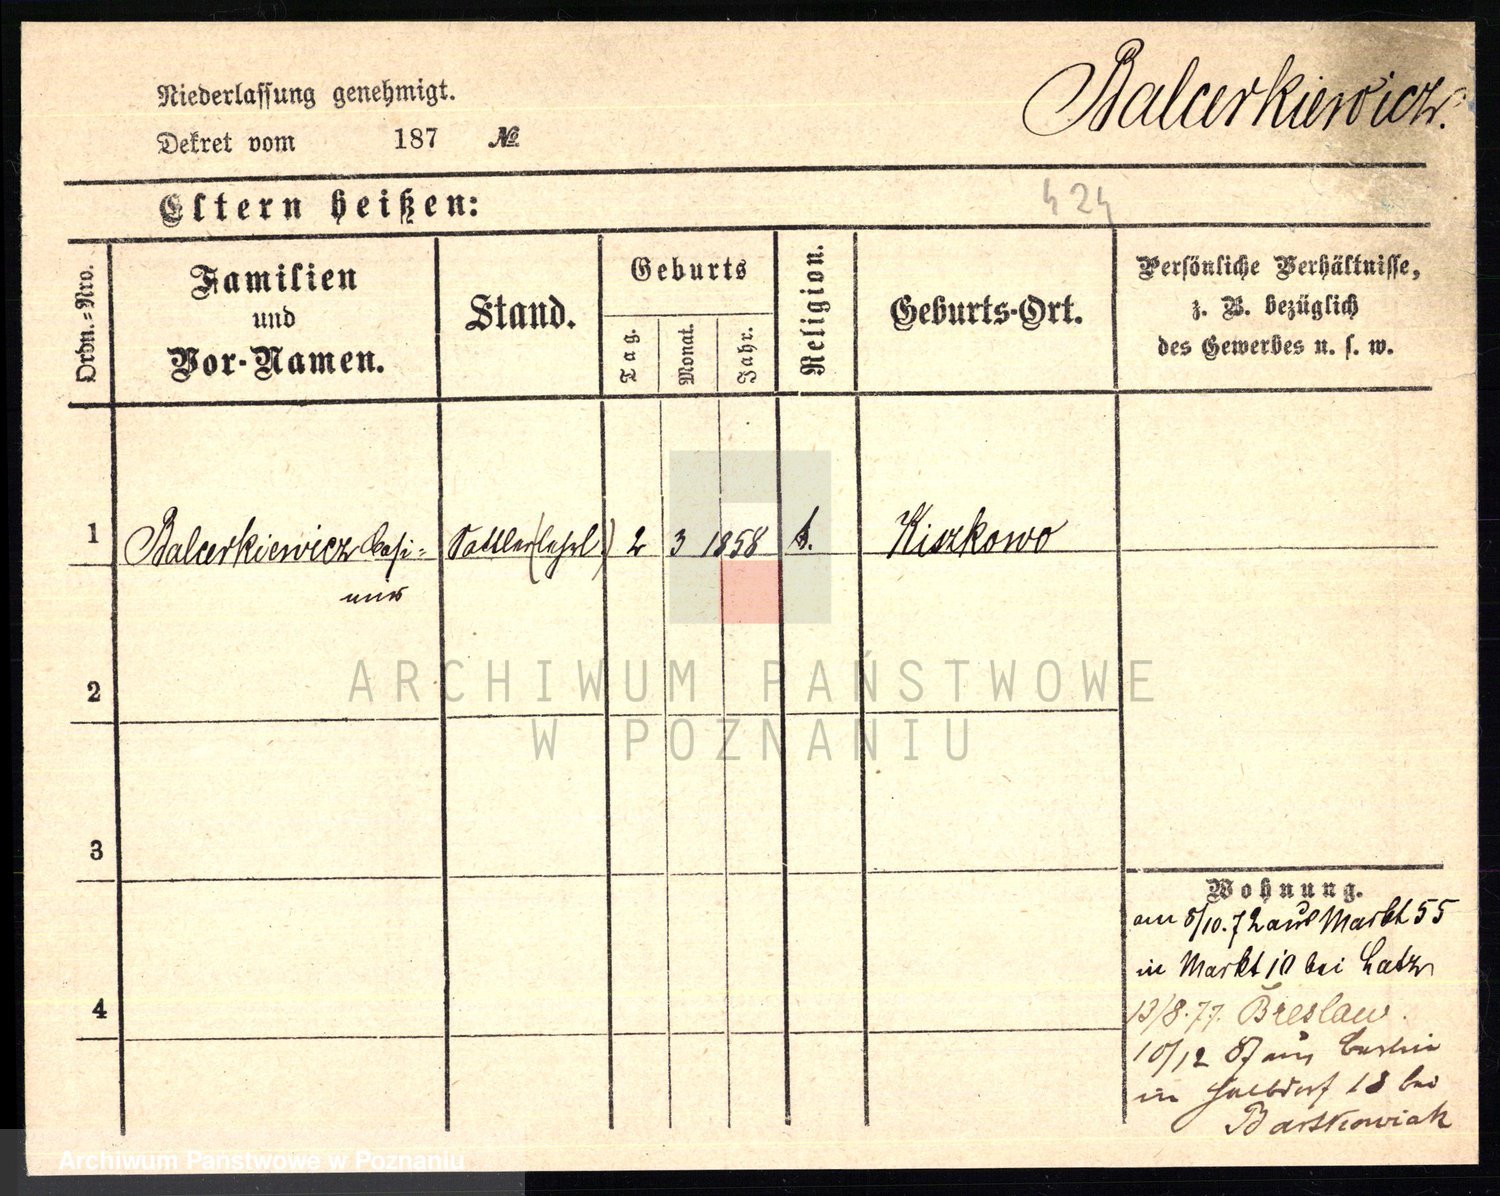 Niederlassung genehmigt.
Balcerkiewicz.
Dekret vom 187 №
Eltern heißen:
424
Ordn.=Nro.
Familien
und
Vor-Namen.
Stand.
Geburts
Tag.
Monat.
Jahr.
Religion.
Geburts-Ort.
Persönliche Verhältnisse,
z. B. bezüglich
des Gewerbes u. s. w.
1 Balcerkiewicz Casi= Sattler(lehrl) 2 3 1858 k. Kiszkowo
mir
2
3
4
Wohnung.
am 8/10.72 aus Markt 55
in Markt 10 bei Latz
13/8.77. Breslau.
10/12 87 aus Berlin
in Halbdorf 18 bei
Bartkowiak
ARCHIWUM PAŃSTWOWE
W POZNANIU
Archiwum Państwowe w Poznaniu